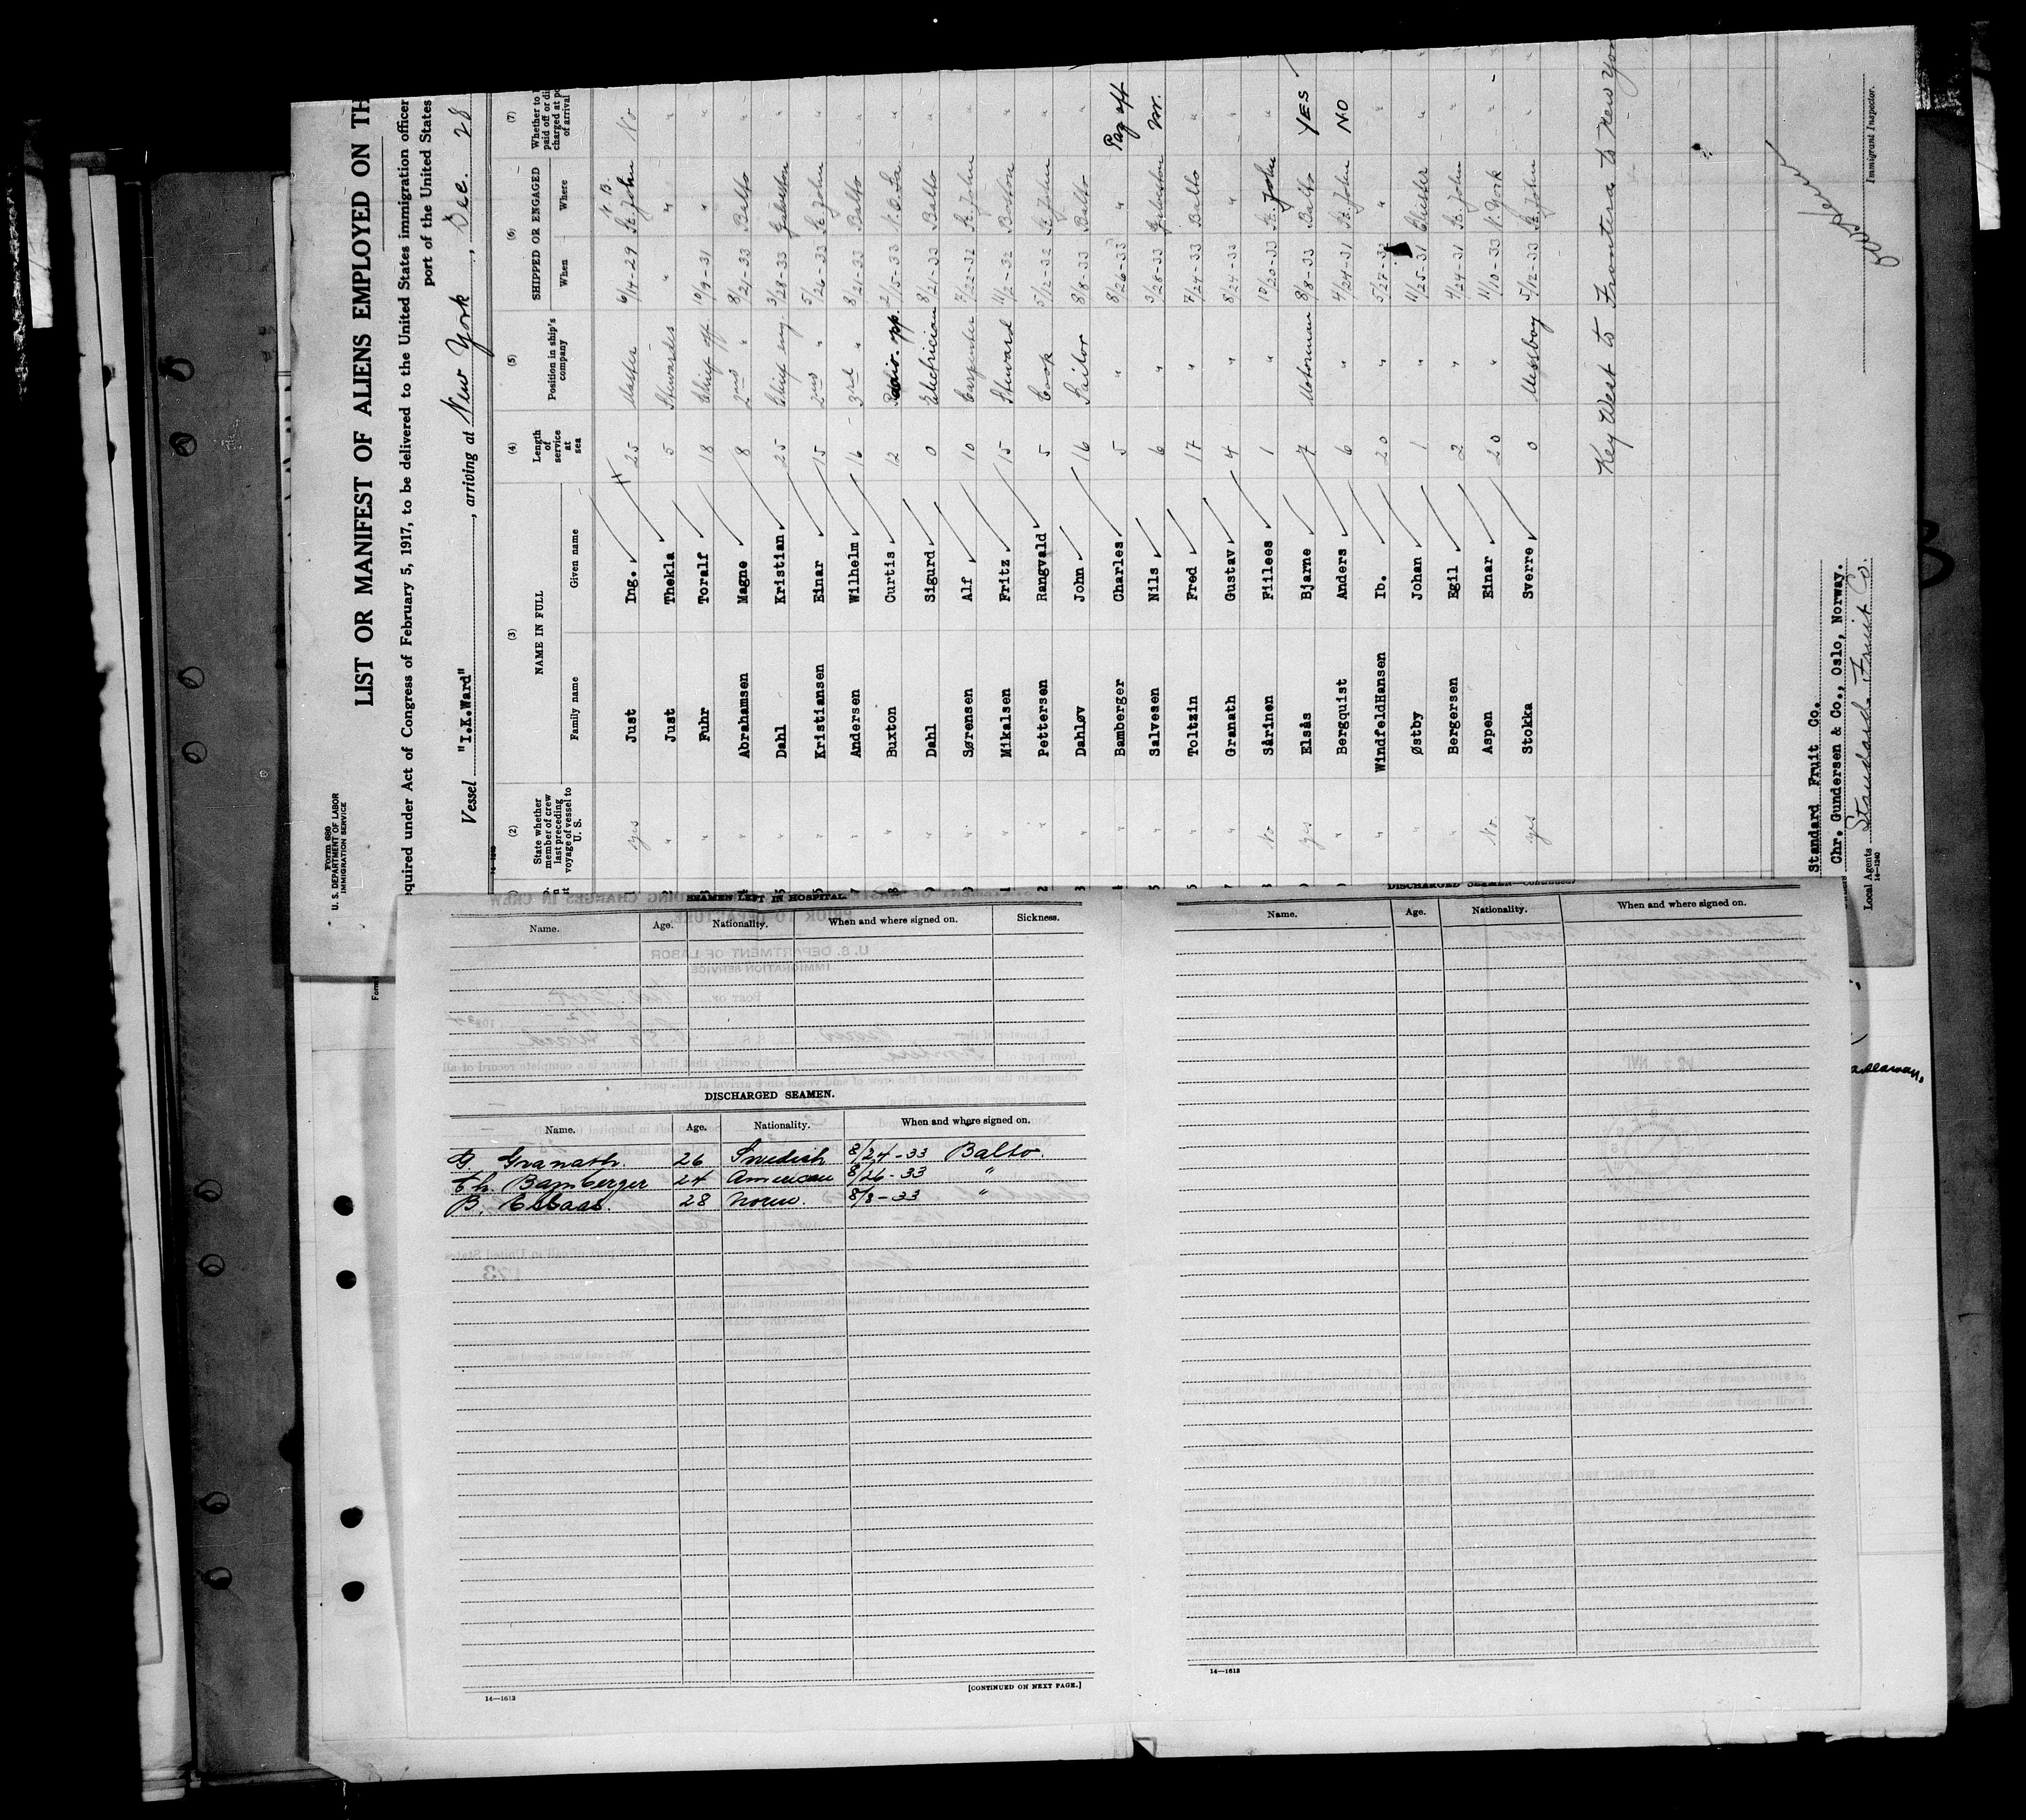 Form 680
U. S. DEPARTMENT OF LABOR
IMMIGRATION SERVICE
LIST OR MANIFEST OF ALIENS EMPLOYED ON TH
quired under Act of Congress of February 5, 1917, to be delivered to the United States immigration officer
port of the United States
Vessel "I.K.Ward", arriving at New York, Dec. 28
(2) (3) (4) (5) (6) (7)
State whether member of crew last preceding voyage of vessel to U. S. NAME IN FULL Family name Given name Length of service at sea Position in ship's company SHIPPED OR ENGAGED When Where Whether to paid off or di charged at po of arrival
1 yes Just Ing. 25 Master 6/14-29 St. John N.B. No
2 " Just Thekla 5 Stewardess " " "
3 " Fuhr Toralf 18 Chief off 10/9-31 " "
4 " Abrahamsen Magne 8 2nd " 8/21-33 Balto "
5 " Dahl Kristian 25 Chief eng. 3/28-33 Galveston "
" Kristiansen Einar 15 2nd " 5/26-33 St. John "
7 " Andersen Wilhelm 16 3rd " 8/21-33 Balto "
8 " Buxton Curtis 12 Radio opp. 2/15-33 N.O. La. "
" Dahl Sigurd 0 Electrician 8/21-33 Balto "
" Sørensen Alf 10 Carpenter 7/22-32 St. John "
" Mikalsen Fritz 15 Steward 11/2-32 Boston "
2 " Pettersen Rangvald 5 Cook 5/12-32 St. John "
3 " Dahløv John 16 Sailor 8/8-33 Balto "
4 " Bamberger Charles 5 " 8/26-33 " Pay off
5 " Salvesen Nils 6 " 3/28-33 Galveston
" Toltzin Fred 17 " 7/24-33 Balto "
7 " Granath Gustav 4 " 8/24-33 " "
8 No Sårinen Fiilees 1 " 10/20-33 St. John "
yes Elsås Bjarne 7 Motorman 8/8-33 Balto YES
" Bergquist Anders 6 " 4/24-31 St. John NO
" WindfeldHansen Ib. 20 " 5/27-33 " "
" Østby Johan 1 " 11/25-31 Chester "
" Bergersen Egil 2 " 4/24-31 St. John "
No. Aspen Einar 20 " 11/10-33 N. York "
yes Stokka Sverre 0 Messboy 5/12-33 St. John "
Key West to Frontera to New Yor
Standard Fruit Co.
Chr. Gundersen & Co., Oslo, Norway.
Local Agents Standard Fruit Co.
14-1240
Immigrant Inspector.
SEAMEN LEFT IN HOSPITAL.
Name. Age. Nationality. When and where signed on. Sickness.
DISCHARGED SEAMEN.
Name. Age. Nationality. When and where signed on.
G. Granath. 26 Swedish 8/24-33 Balto.
Ch. Bamberger 24 American 8/26-33 "
B. Elsaas. 28 Norw. 8/8-33 "
14—1613
[CONTINUED ON NEXT PAGE.]
DISCHARGED SEAMEN—Continued.
Name. Age. Nationality. When and where signed on.
14—1613